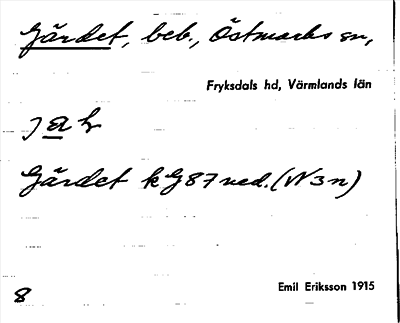 Gärdet, beb., Östmarks sn,
Fryksdals hd, Värmlands län
Gärdet k G87 ned. (N3n)
8
Emil Eriksson 1915